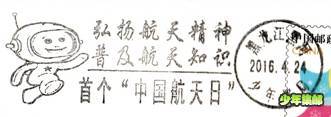 弘扬航天精神
普及航天知识
首个“中国航天日”
黑龙江
2016.4.24
少年集邮